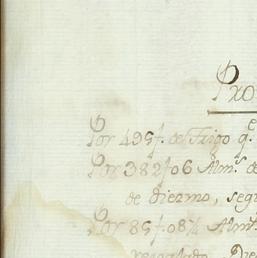 Pro
Por 495f. de Trigo q.e
Por 382f06 Alm.s de
de diezmo, segu
Por 85f.08¼ Alm.s